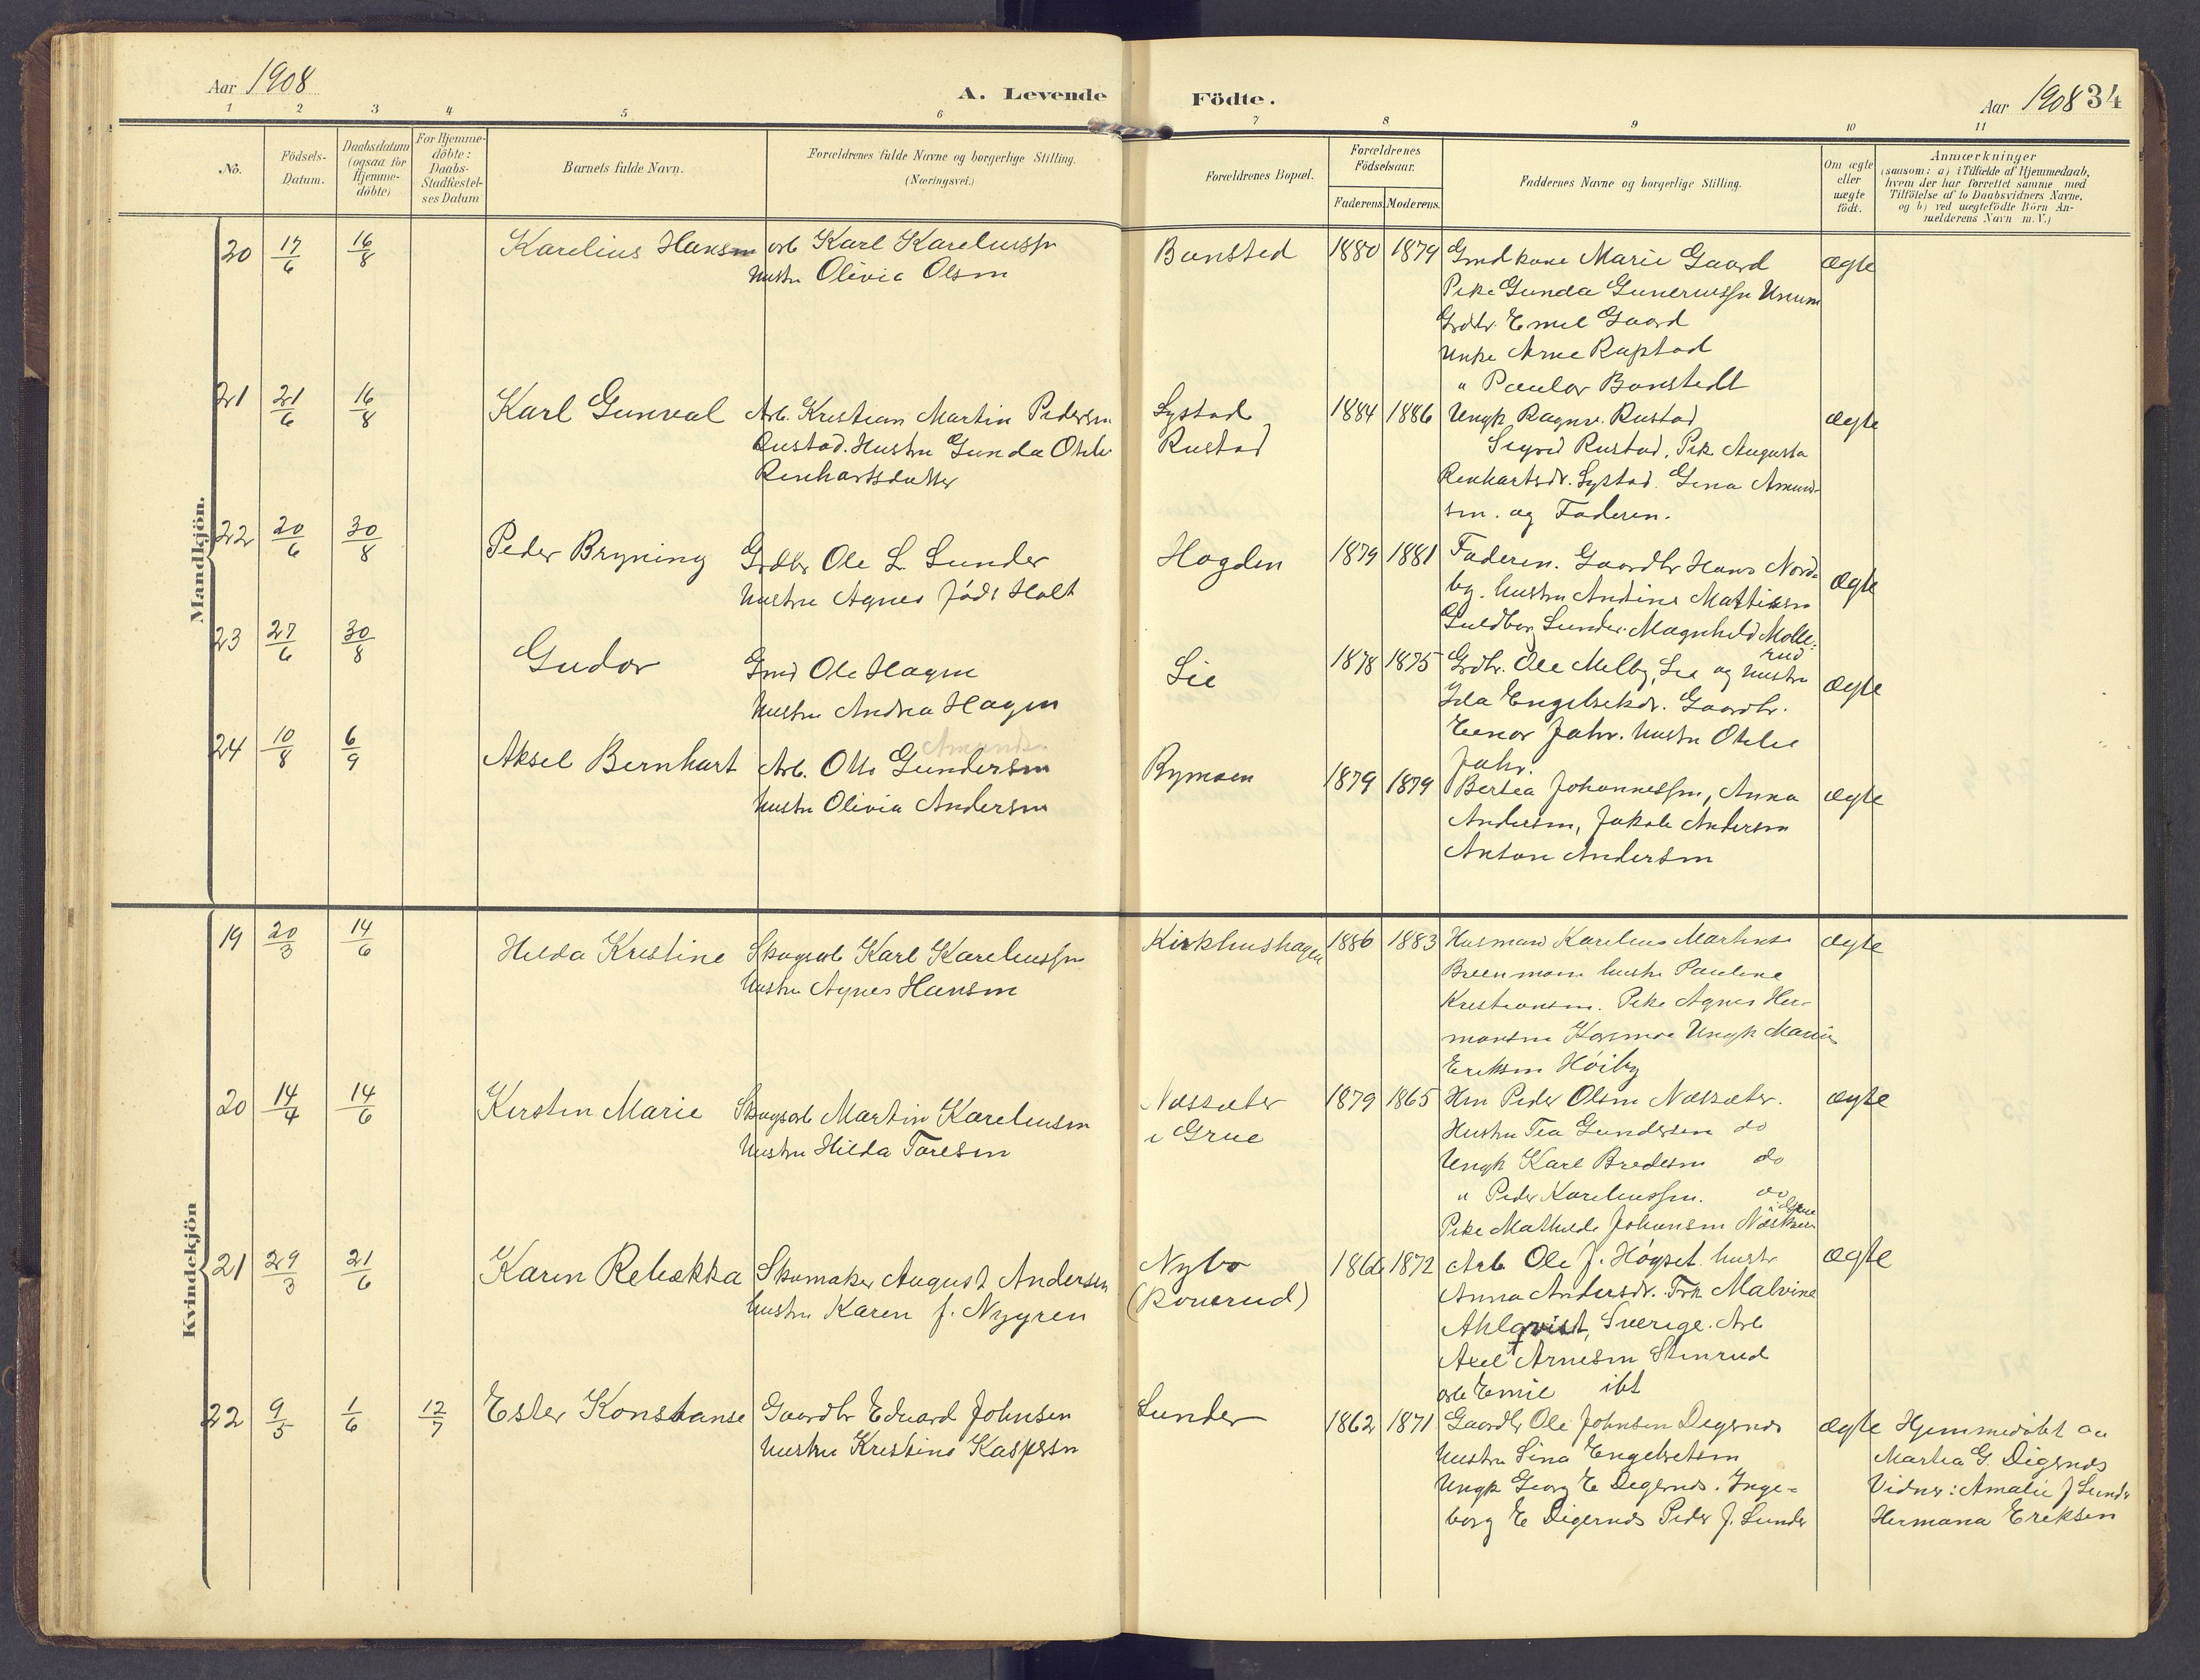 Aar 1908
A. Levende Födte.
Aar 1908 34
1 2 3 4 5 6 7 8 9 10 11
No.
Födsels-Datum.
Daabsdatum (ogsaa for Hjemme-döbte)
For Hjemme-döbte: Daabs-Stadfæstel-ses Datum
Barnets fulde Navn.
Forældrenes fulde Navne og borgerlige Stilling. (Næringsvei.)
Forældrenes Bopæl.
Forældrenes Födselsaar.
Faderens. Moderens.
Faddernes Navne og borgerlige Stilling.
Om ægte eller uægte födt.
Anmærkninger
(saasom: a) i Tilfælde af Hjemmedaab,
hvem der har forrettet samme med
Tilföielse af to Daabsvidners Navne,
og b) ved uægtefödte Börn An-
melderens Navn m. V.)
Mandkjön.
20 17/6 16/8 Karelius Hansen
arb Karl Kareliussen
hustru Olivia Olsen
Bunsted
1880 1879
Gmdkone Marie Gaard
Pike Gunda Gunerussen
Grdbr. Emil Gaard
Arne Rapstad
" Paular Bonstedt
ægte
21 21/6 16/8 Karl Gunval
Arb. Kristian Martin Pedersen
Rustad. Hustru Gunda Otilie
Renhartsdatter
Systad
Rustad
1884 1886
Ungk Ragnv. Rustad
Sigrid Rustad, Pik Augusta
Renhartsdr. Systad. Gina Amund-
sen. og Faderen.
ægte
22 20/6 30/8 Peder Bryning
Grdbr Ole L. Sunder
hustru Agnes föds Holt
Hagden
1879 1881
Faderen. Gaardbr Hans Nord-
by. hustru Andine Mattisen
Guldbor Sunder. Magnhild Molle-
rud
ægte
23 27/6 30/8 Gudor
Gmd Ole Hagen
hustru Andrea Hagen
Lie
1878 1875
Grdbr. Ole Melby, Lie og hustru
Ida Engebrektdr. Gaardbr.
Einar Jahr. hustru Otilie
Jahr.
ægte
24 10/8 6/9 Aksel Bernhart
Amunds.
Arb. Otto Gundersen
hustru Olivia Andersen
Rymoen
1879 1879
Bertea Johannessen, Anna
Andersen, Jakob Andersen
Anton Andersen
ægte
Kvindekjön
19 20/3 14/6 Hilda Kristine
Skogsarb Karl Kareliussen
hustru Agnes Hansen
Kirkhushagen
1886 1883
Husmand Karelius Martins
Breenmoen hustru Pauline
Kristiansen. Pike Agnes Her-
mansen Ungk Marius
Eriksen Höiby
ægte
20 14/4 14/6 Kirsten Marie
Skogsarb Martin Kareliusen
hustru Hilda Toresen
Næssæter
i Grue
1879 1865
Hm Peder Olsen Næssæter.
Hustru Tea Gundersen do
Ungk Karl Bredesen do
" Peder Kareliussen. do
i Grue
Pike Mathilde Johansen
ægte
21 29/3 21/6 Karen Rebekka
Skomaker August Andersen
hustru Karen f. Nygren
Nybo
(Rouerud)
1866 1872
Arb Ole J. Högset hustr
Anna Andersdr. Frk Malvine
Ahlqvist, Sverige. Arb
Axel Arnesen Stenrud
arb Emil ibt
ægte
22 9/5 1/6 12/7 Ester Konstanse
Gaardbr Eduard Johnsen
hustru Kristine Kaspersen
Sunder
1862 1871
Gaardbr Ole Johnsen Digernes
hustru Lina Engebretsen
Ungk Georg E Digernes. Inge-
borg E Digernes Peder J. Sunder
ægte
Hjemmedöbt av
Martia G. Digernes
Vidner: Amalie J Sunder
Hermana Eriksen